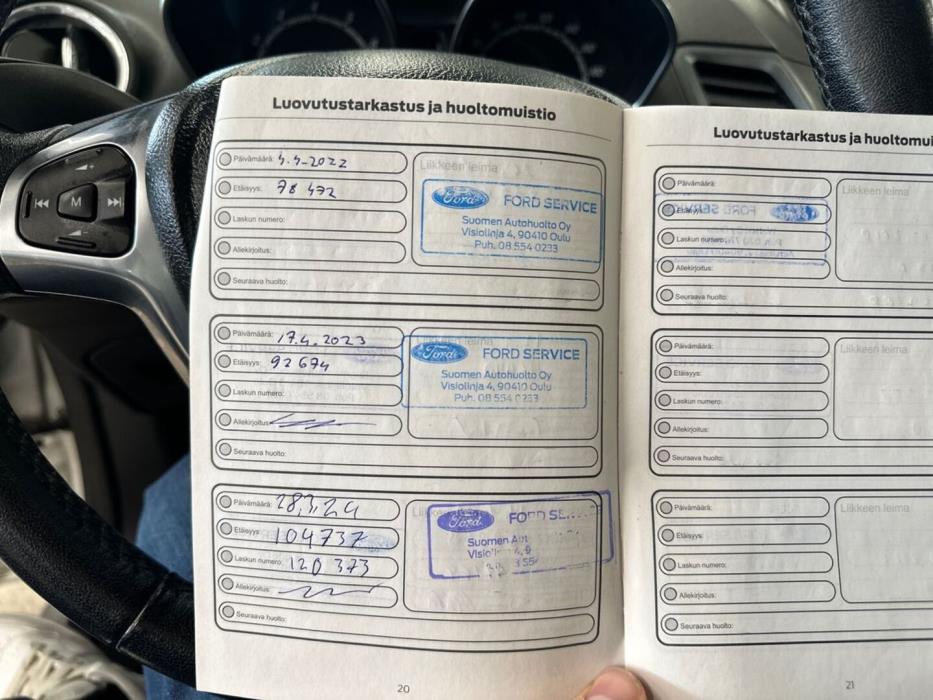 Luovutustarkastus ja huoltomuistio
Päivämäärä: 4.4-2022
Etäisyys: 78 472
Laskun numero:
Allekirjoitus:
Seuraava huolto:
Liikkeen leima
Ford FORD SERVICE
Suomen Autohuolto Oy
Visiolinja 4, 90410 Oulu
Puh. 08 554 0233
Päivämäärä: 17.4.2023
Etäisyys: 92 674
Laskun numero:
Allekirjoitus:
Seuraava huolto:
leima
Ford FORD SERVICE
Suomen Autohuolto Oy
Visiolinja 4, 90410 Oulu
Puh. 08 554 0233
Päivämäärä: 28.3.24
Etäisyys: 104737
Laskun numero: 120 373
Allekirjoitus:
Seuraava huolto:
Ford FORD
Suomen
20
Luovutustarkastus ja huoltomui
Päivämäärä:
Etäisyys:
Laskun numero:
Allekirjoitus:
Seuraava huolto:
Liikkeen leima
Päivämäärä:
Etäisyys:
Laskun numero:
Allekirjoitus:
Seuraava huolto:
Liikkeen leima
Päivämäärä:
Etäisyys:
Laskun numero:
Allekirjoitus:
Seuraava huolto:
Liikkeen leima
21
M